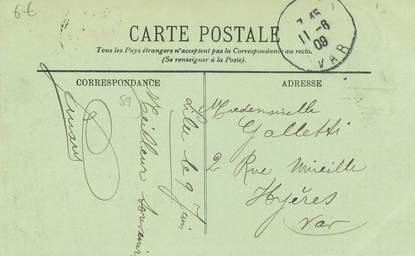 6-6
CARTE POSTALE
Tous les Pays étrangers n'acceptent pas la Correspondance au recto.
(Se renseigner à la Poste).
7-45
11-6
09
VAR
CORRESPONDANCE
ADRESSE
Lille le 9 Juin
Meilleur souvenir
Mademoiselle
Galletti
2 Rue Mireille
Hyères
Var